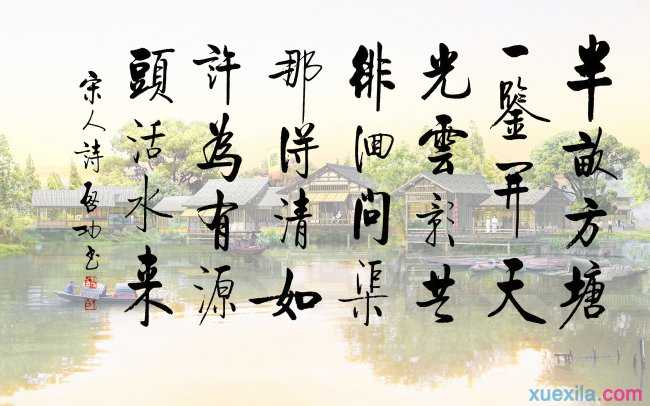 半畝方塘
一鑒开天
光雲影共
徘徊問渠
那得清如
許為有源
頭活水来
宋人詩 啓功书
xuexila.com